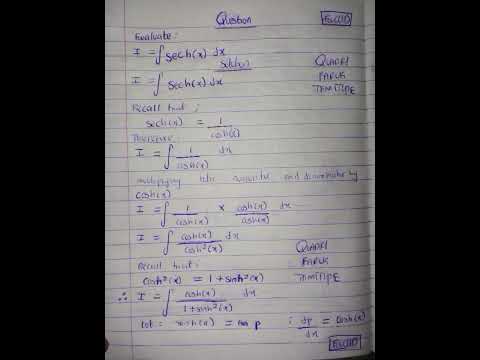 Question
Evaluate:
I = ∫ sech(x) dx
Solution
I = ∫ sech(x) dx
QUADRI
FARUK
TEMITOPE
Recall that;
sech(x) = 1/cosh(x)
Therefore
I = ∫ 1/cosh(x) dx
multiplying the numerator and denominator by
cosh(x)
I = ∫ 1/cosh(x) × cosh(x)/cosh(x) dx
I = ∫ cosh(x)/cosh²(x) dx
QUADRI
FARUK
TEMITOPE
Recall that:
cosh²(x) = 1 + sinh²(x)
∴ I = ∫ cosh(x)/1+sinh²(x) dx
let: sinh(x) = p ; dp/dx = cosh(x)